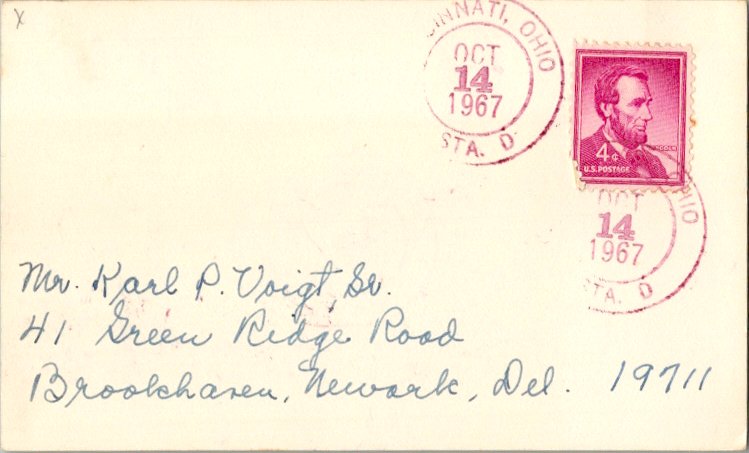 x
CINNATI, OHIO
OCT
14
1967
STA. D
4¢
LINCOLN
U.S. POSTAGE
OHIO
OCT
14
1967
STA. D
Mr. Karl P. Voigt Sr.
41 Green Ridge Road
Brookhaven, Newark, Del. 19711